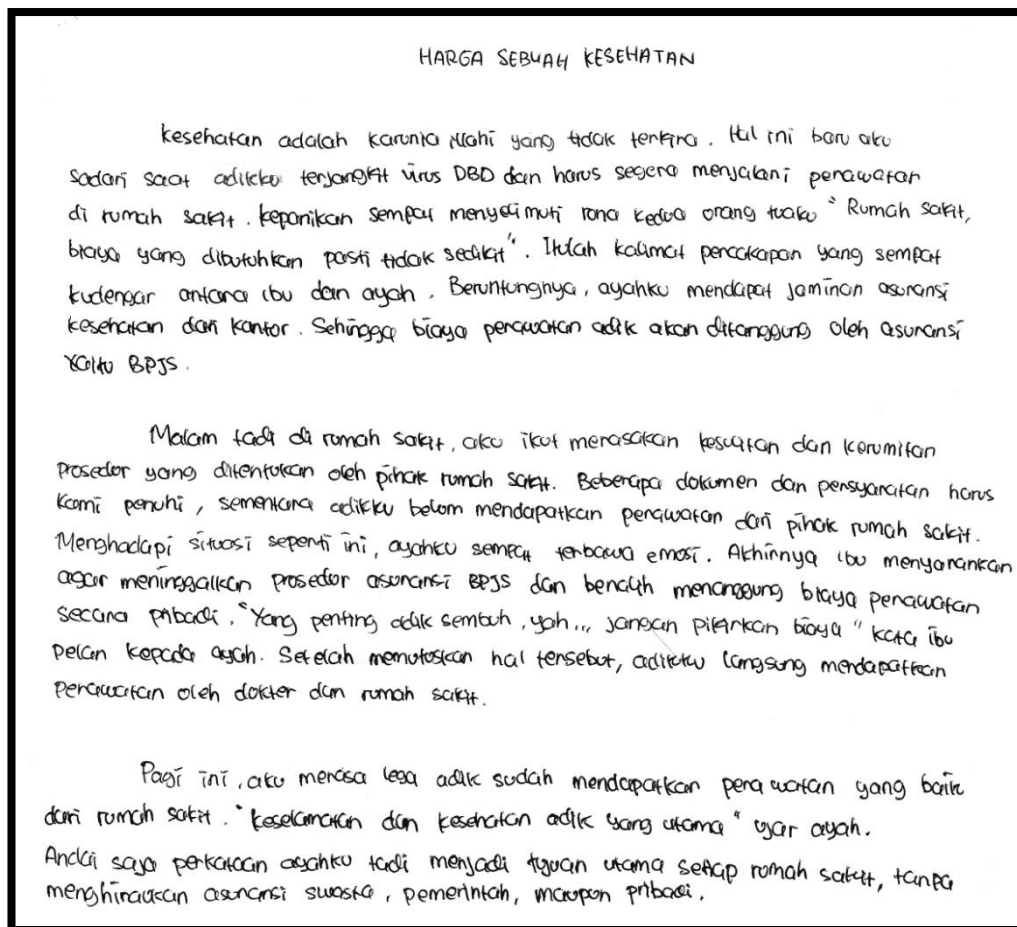 HARGA SEBUAH KESEHATAN
Kesehatan adalah karunia Illahi yang tidak terkira. Hal ini baru aku
sadari saat adikku terjangkit virus DBD dan harus segera menjalani perawatan
di rumah sakit. Kepanikan sempat menyelimuti rona kedua orang tuaku "Rumah sakit,
biaya yang dibutuhkan pasti tidak sedikit". Itulah kalimat percakapan yang sempat
kudengar antara ibu dan ayah. Beruntungnya, ayahku mendapat jaminan asuransi
kesehatan dari kantor. Sehingga biaya perawatan adik akan ditanggung oleh asuransi
yaitu BPJS.
Malam tadi di rumah sakit, aku ikut merasakan kesulitan dan kerumitan
prosedur yang ditentukan oleh pihak rumah sakit. Beberapa dokumen dan persyaratan harus
kami penuhi, sementara adikku belum mendapatkan perawatan dari pihak rumah sakit.
Menghadapi situasi seperti ini, ayahku sempat terbawa emosi. Akhirnya ibu menyarankan
agar meninggalkan prosedur asuransi BPJS dan beralih menanggung biaya perawatan
secara pribadi. "Yang penting adik sembuh, yah... jangan pikirkan biaya" kata ibu
pelan kepada ayah. Setelah memutuskan hal tersebut, adikku langsung mendapatkan
perawatan oleh dokter dan rumah sakit.
Pagi ini, aku merasa lega adik sudah mendapatkan perawatan yang baik
dari rumah sakit. "Keselamatan dan kesehatan adik yang utama" ujar ayah.
Andai saja perkataan ayahku tadi menjadi tujuan utama setiap rumah sakit, tanpa
menghiraukan asuransi swasta, pemerintah, maupun pribadi.